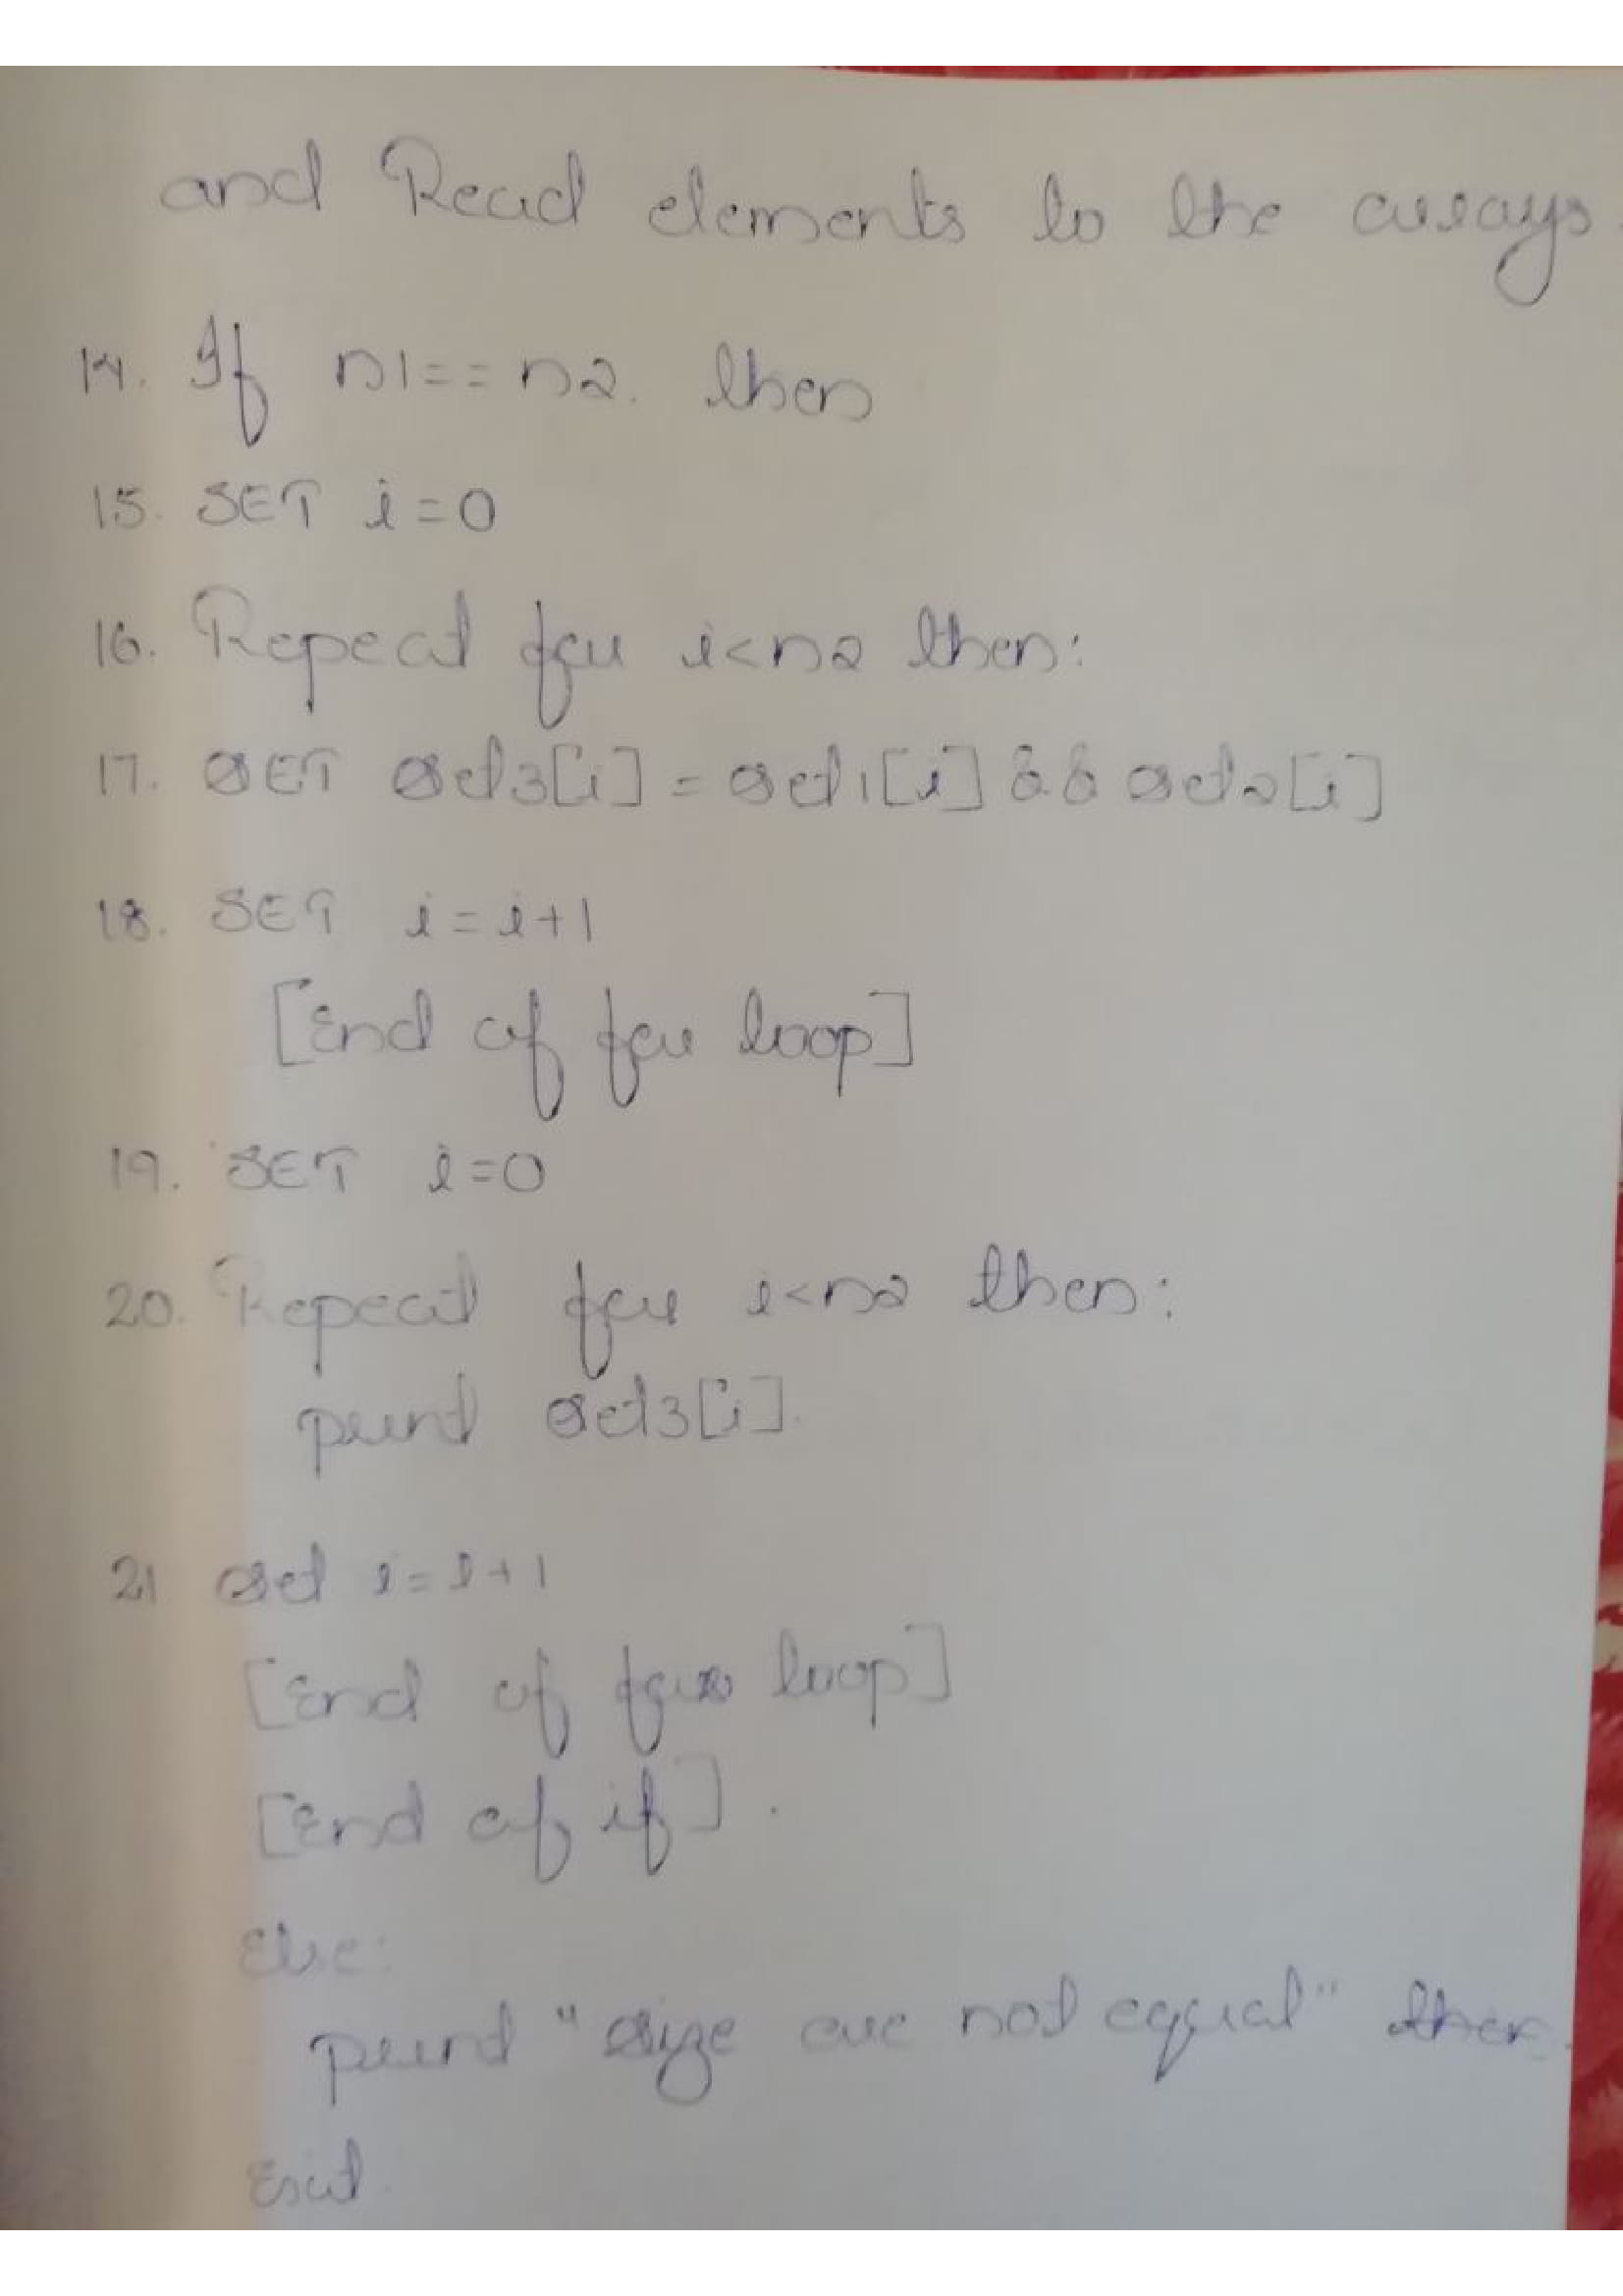 and Read elements to the arrays.
14. If n1==n2. then
15. SET i=0
16. Repeat for i<n2 then:
17. SET set3[i] = set1[i] && set2[i]
18. SET i=i+1
[End of for loop]
19. SET i=0
20. Repeat for i<n2 then:
print set3[i].
21 set i=i+1
[End of for loop]
[End of if].
Else:
print "size are not equal" then.
Exit